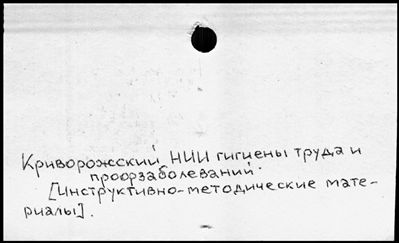 Криворожский НИИ гигиены труда и
профзаболеваний.
[Инструктивно-методические мате-
риалы].